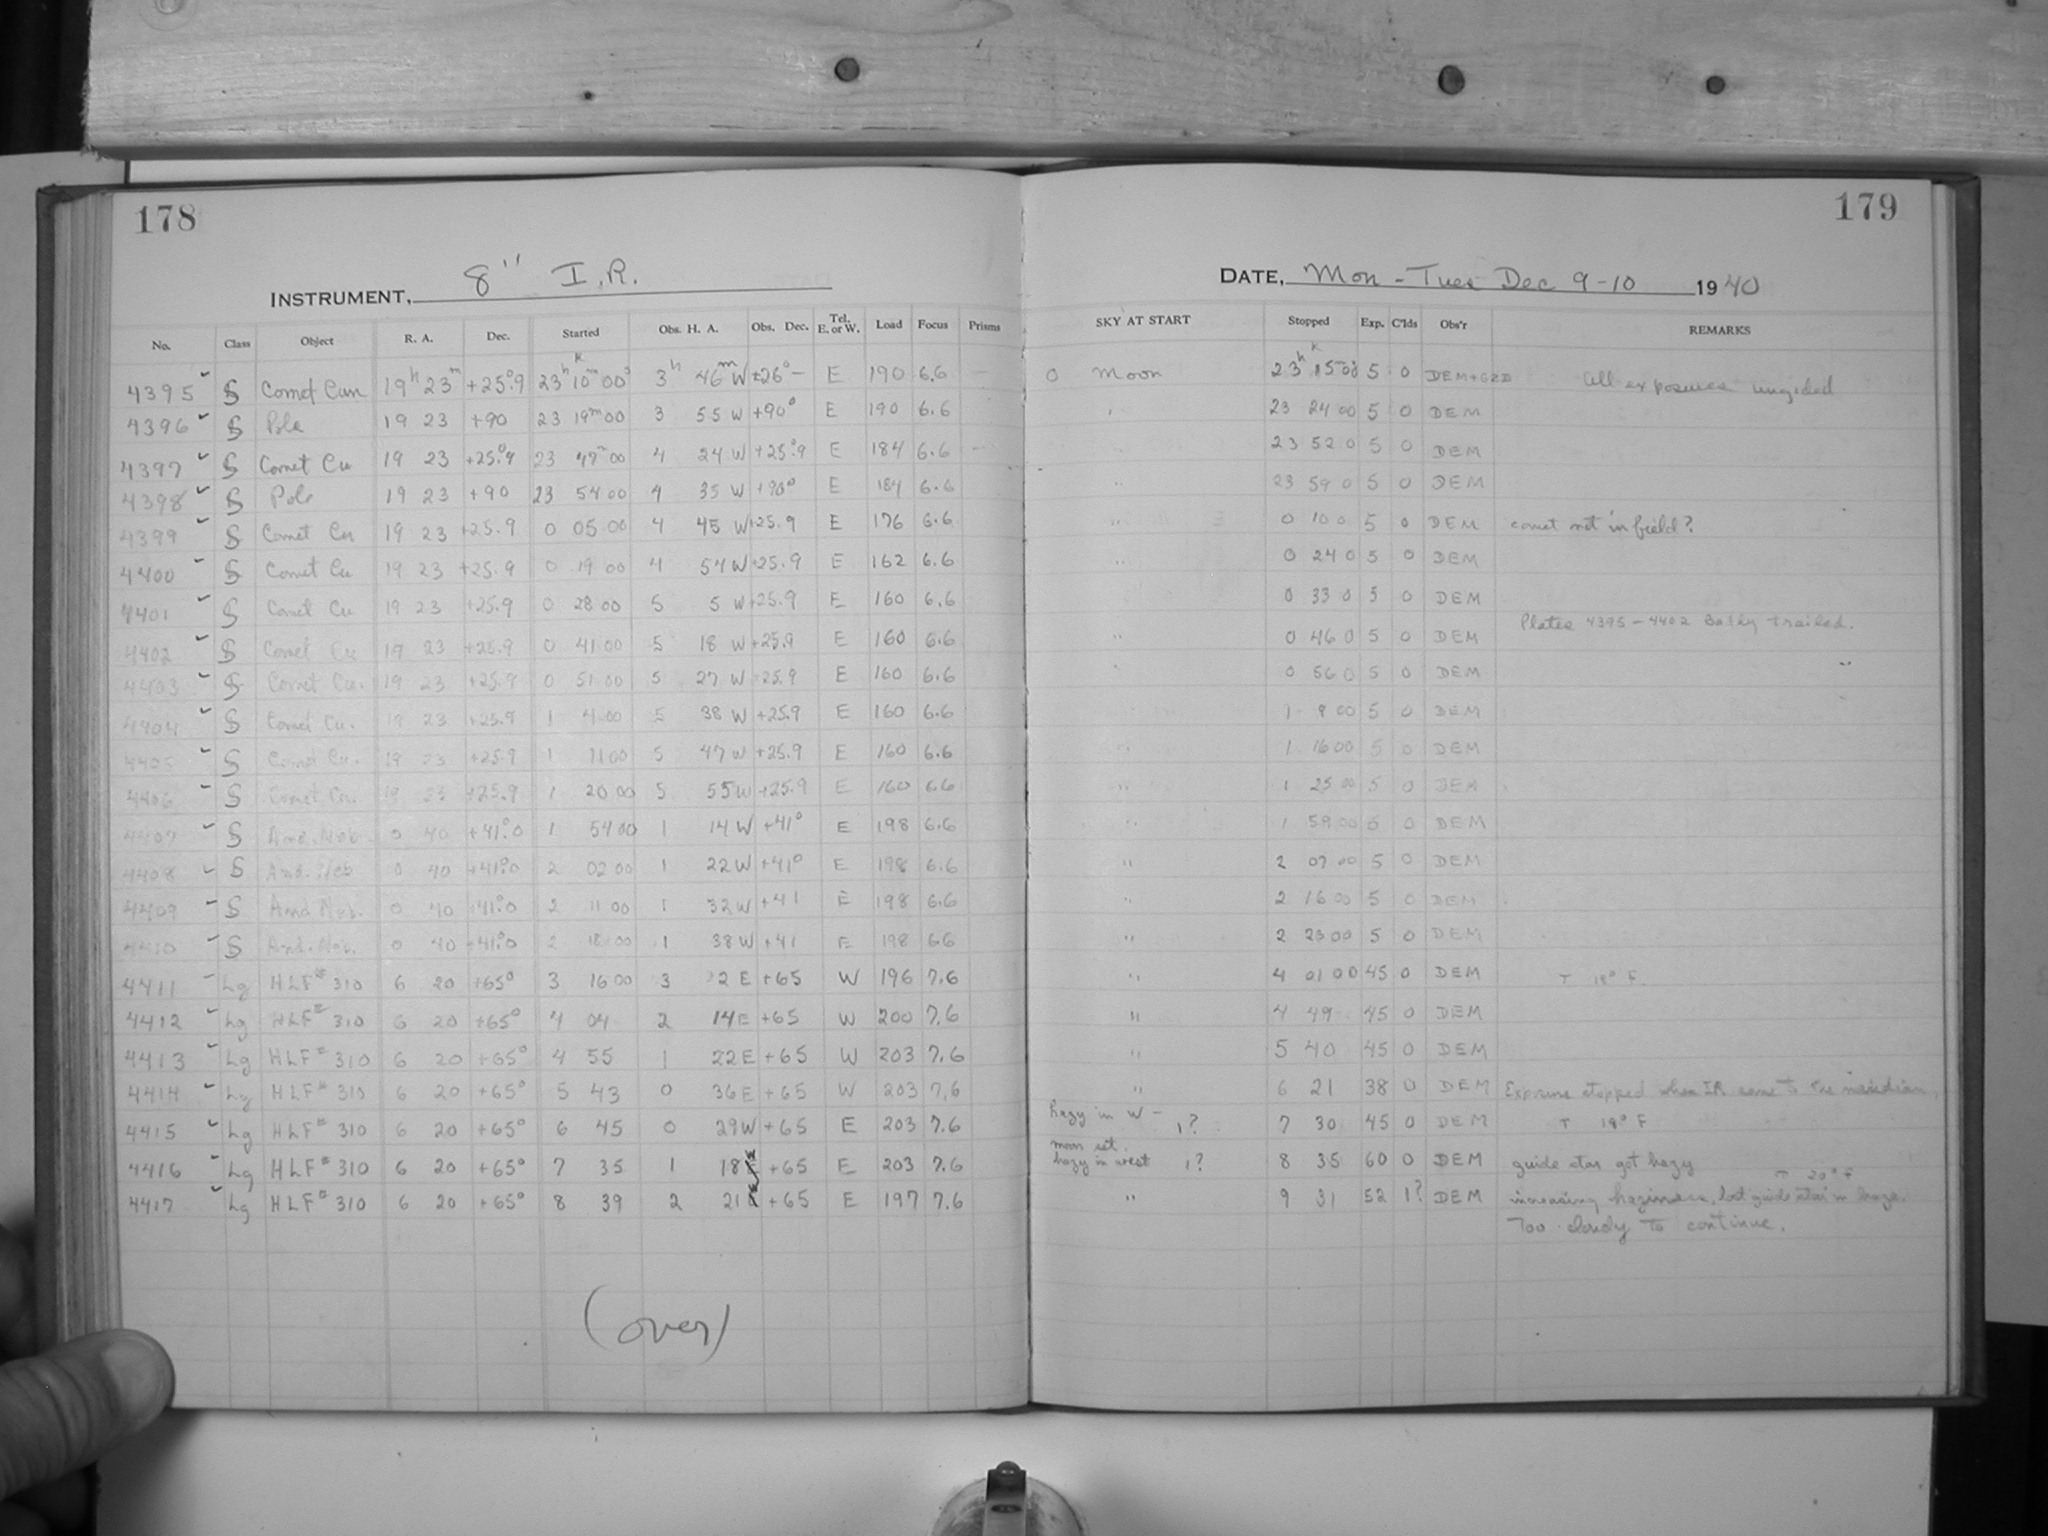 178
179
INSTRUMENT, 8" I.R.
DATE, Mon - Tues Dec 9-10 1940
No. Class Object R. A. Dec. Started Obs. H. A. Obs. Dec. Tel. E. or W. Load Focus Prisms SKY AT START Stopped Exp. C'lds Obs'r REMARKS
4395 S Comet Cun 19h 23m +25°.9 23h 10m 00s 3h 46m W +26°- E 190 6.6 0 Moon 23h 15 00 5 0 DEM+GZD All exposures unguided
4396 S Pole 19 23 +90 23 19m 00 3 55 W +90° E 190 6.6 " 23 24 00 5 0 DEM
4397 S Comet Cu 19 23 +25.°9 23 47m 00 4 24 W +25°.9 E 184 6.6 " 23 52 0 5 0 DEM
4398 S Pole 19 23 +90 23 54 00 4 35 W +90° E 184 6.6 " 23 59 0 5 0 DEM
4399 S Comet Cu 19 23 +25.9 0 05 00 4 45 W +25.9 E 176 6.6 " 0 10 0 5 0 DEM comet not in field?
4400 S Comet Cu 19 23 +25.9 0 19 00 4 54 W +25.9 E 162 6.6 " 0 24 0 5 0 DEM
4401 S Comet Cu 19 23 +25.9 0 28 00 5 5 W +25.9 E 160 6.6 0 33 0 5 0 DEM
Plates 4395 - 4402 Badly trailed.
4402 S Comet Cu 19 23 +25.9 0 41 00 5 18 W +25.9 E 160 6.6 " 0 46 0 5 0 DEM
4403 S Comet Cu. 19 23 +25.9 0 51 00 5 27 W +25.9 E 160 6.6 " 0 56 0 5 0 DEM
4404 S Comet Cu. 19 23 +25.9 1 4 00 5 38 W +25.9 E 160 6.6 1 9 00 5 0 DEM
4405 S Comet Cu. 19 23 +25.9 1 11 00 5 47 W +25.9 E 160 6.6 " 1 16 00 5 0 DEM
4406 S Comet Cu. 19 23 +25.9 1 20 00 5 55 W +25.9 E 160 6.6 " 1 25 00 5 0 DEM
4407 S And. Neb. 0 40 +41°.0 1 54 00 1 14 W +41° E 198 6.6 " 1 59 00 5 0 DEM
4408 S And. Neb 0 40 +41°.0 2 02 00 1 22 W +41° E 198 6.6 " 2 07 00 5 0 DEM
4409 S And Neb. 0 40 +41°.0 2 11 00 1 32 W +41 E 198 6.6 " 2 16 00 5 0 DEM
4410 S And. Neb. 0 40 +41°.0 2 18 00 1 38 W +41 E 198 6.6 " 2 23 00 5 0 DEM
4411 Lg HLF# 310 6 20 +65° 3 16 00 3 2 E +65 W 196 7.6 " 4 01 00 45 0 DEM T 18° F.
4412 Lg HLF# 310 6 20 +65° 4 04 2 14 E +65 W 200 7.6 " 4 49 45 0 DEM
4413 Lg HLF# 310 6 20 +65° 4 55 1 22 E +65 W 203 7.6 " 5 40 45 0 DEM
4414 Lg HLF# 310 6 20 +65° 5 43 0 36 E +65 W 203 7.6 " 6 21 38 0 DEM Exposure stopped when IR came to the meridian.
4415 Lg HLF# 310 6 20 +65° 6 45 0 29 W +65 E 203 7.6 hazy in W - 1? 7 30 45 0 DEM T 19° F
4416 Lg HLF# 310 6 20 +65° 7 35 1 18 +65 E 203 7.6 moon set. hazy in west 1? 8 35 60 0 DEM guide star got hazy T 20° F
4417 Lg HLF# 310 6 20 +65° 8 39 2 21 +65 E 197 7.6 " 9 31 52 1? DEM increasing haziness, lost guide star in haze.
Too cloudy to continue.
(over)